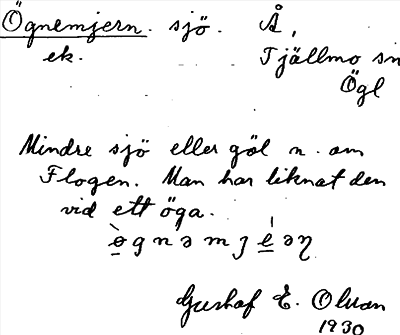 Ögnemjern. sjö. Å,
ek. Tjällmo sn
Ögl
Mindre sjö eller göl n. om
Flogen. Man har liknat den
vid ett öga.
Gustaf E. Olvan
1930